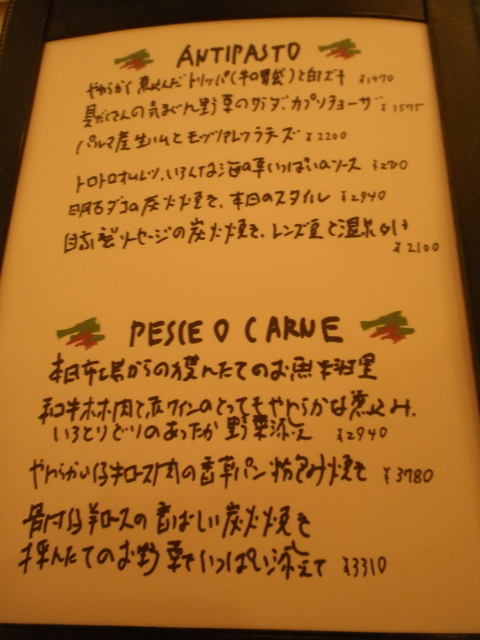 ANTIPASTO
やわらかく煮込んだトリッパ(牛胃袋)と白いんげん ¥1470
具だくさんの気まぐれ野菜のサラダ、カプリチョーザ ¥1575
パルマ産生ハムとモッツァレラチーズ ¥2200
トロトロオムレツ、いろんな海の幸いっぱいのソース
明石ダコの炭火焼き、本日のスタイル ¥2940
自家製ソーセージの炭火焼き、レンズ豆と温泉
¥2100
PESCE O CARNE
本日市場からの獲れたてのお魚料理
和牛ホホ肉と赤ワインのとってもやわらかな煮込み、
いろとりどりのあったか野菜添え ¥2940
やわらかい仔牛ロース肉の香草パン粉包み焼き ¥3780
骨付仔羊ロースの香ばしい炭火焼き
採れたてのお野菜でいっぱい添えて ¥3310